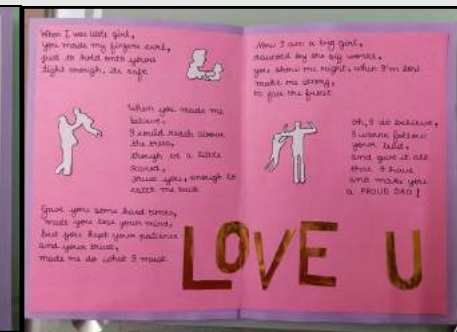 When I was little girl,
you made my fingers curl,
just to hold onto yours
tight enough, its safe
When you made me
believe,
I could reach above
the trees,
though be a little
scared,
trust you, enough to
catch me back
Gave you some hard times,
made you lose your mind,
but you kept your patience
and your trust,
made me do what I must
Now I am a big girl,
daunted by the big world,
you show me right, when I'm lost
make me strong,
to face the
Oh, I do believe,
I wanna follow
your lead,
and give it all
that I have
and make you
a PROUD DAD!
LOVE U